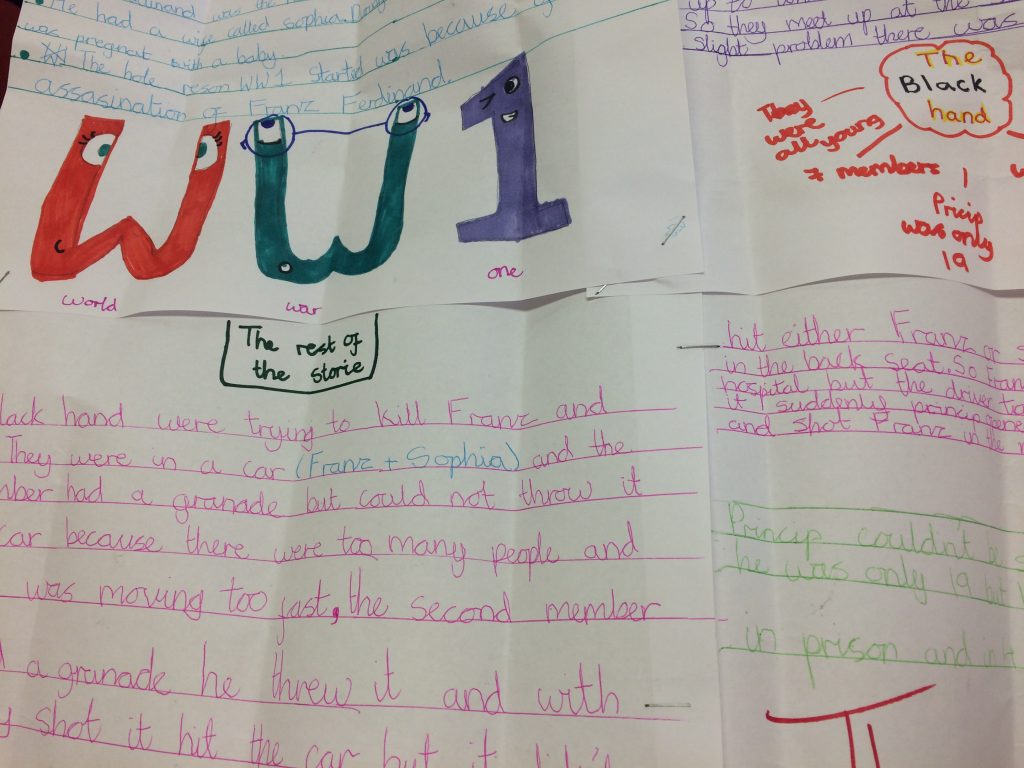 He had a wife called Sophia.
was pregnant with a baby.
The hole reson WW1 started was because
assasination of Franz Ferdinand.
W W 1
world war one
The rest of
the storie
lack hand were trying to kill Franz and
They were in a car (Franz + Sophia) and the
mber had a granade but could not throw it
car because there were too many people and
was moving too fast, the second member
a granade he threw it and with
shot it hit the car but it
So they meet up at the
slight problem there was
The
Black
hand
They
were
all young
7 members
Pricip
was only
19
hit either Franz or
in the back seat. So Fran
hospital but the driver
it, suddenly princip
and shot Franz in the
Princip couldn't be
he was only 19 but
in prison and